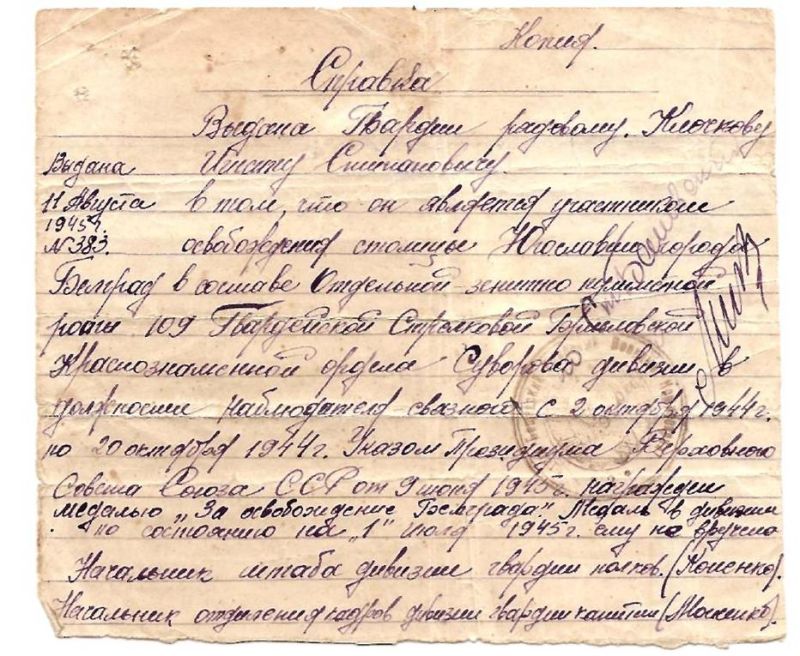 Копия.
Справка
Выдана Гвардии рядовому. Клочкову
Выдана Игнату Степановичу.
11 Августа в том, что он является участником
1945г.
№383. освобождения столицы Югославии города
Белград в составе Отдельной зенитно пулеметной
роты 109 Гвардейской Стрелковой
Краснознаменной ордена Суворова дивизии в
должности наблюдателя связной с 2 октября 1944г.
по 20 октября 1944г. Указом Президиума Верховного
Совета Союза ССР от 9 июня 1945г. награжден
медалью „За освобождение Белграда." Медаль в дивизии
по состоянию на „1" Июля 1945г. ему не вручена
Начальник штаба дивизии гвардии полков.
Начальник отделения кадров дивизии гвардии капитан